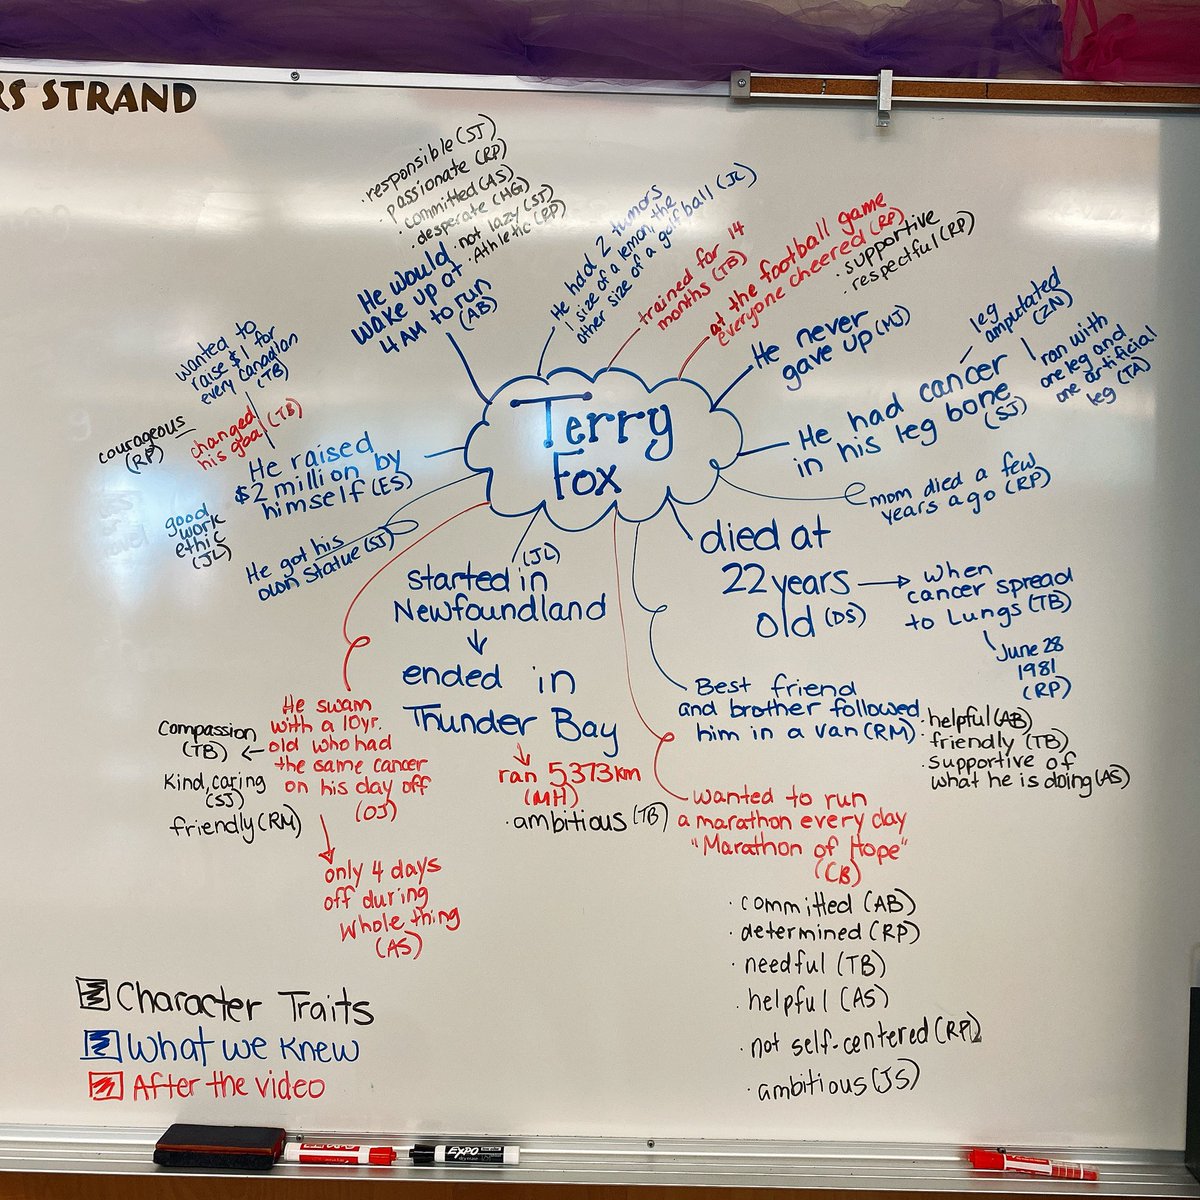 RS STRAND
· responsible (SJ)
· passionate (RP)
· committed (AS)
· desperate (HG)
· not lazy (SJ)
· Athletic (RP)
He would
wake up at
4 AM to run
(AB)
He had 2 tumors
1 size of a lemon, the
other size of a golf ball (JL)
trained for 14
months (TB)
at the football game
everyone cheered (RP)
· supportive
· respectful (RP)
He never
gave up (MJ)
leg
amputated
(ZN)
ran with
one leg and
one artificial
leg (TA)
He had cancer
in his leg bone
(SJ)
mom died a few
years ago (RP)
wanted to
raise $1 for
every Canadian
(TB)
changed
his goal (TB)
courageous
(RP)
He raised
$2 million by
himself (ES)
good
work
ethic
(JL)
He got his
own statue (SJ)
Terry
Fox
died at
22 years
old (DS)
when
cancer spread
to Lungs (TB)
June 28
1981
(RP)
(JL)
started in
Newfoundland
ended in
Thunder Bay
ran 5373km
(MH)
· ambitious (TB)
Best friend
and brother followed
him in a van (RM)
· helpful (AB)
· friendly (TB)
· supportive of
what he is doing (AS)
He swam
with a 10yr.
old who had
the same cancer
on his day off
(OJ)
Compassion
(TB)
Kind, caring
(SJ)
friendly (RM)
only 4 days
off during
whole thing
(AS)
wanted to run
a marathon every day
"Marathon of Hope"
(CB)
· committed (AB)
· determined (RP)
· needful (TB)
· helpful (AS)
· not self-centered (RP)
· ambitious (JS)
Character Traits
What we knew
After the video
EXPO